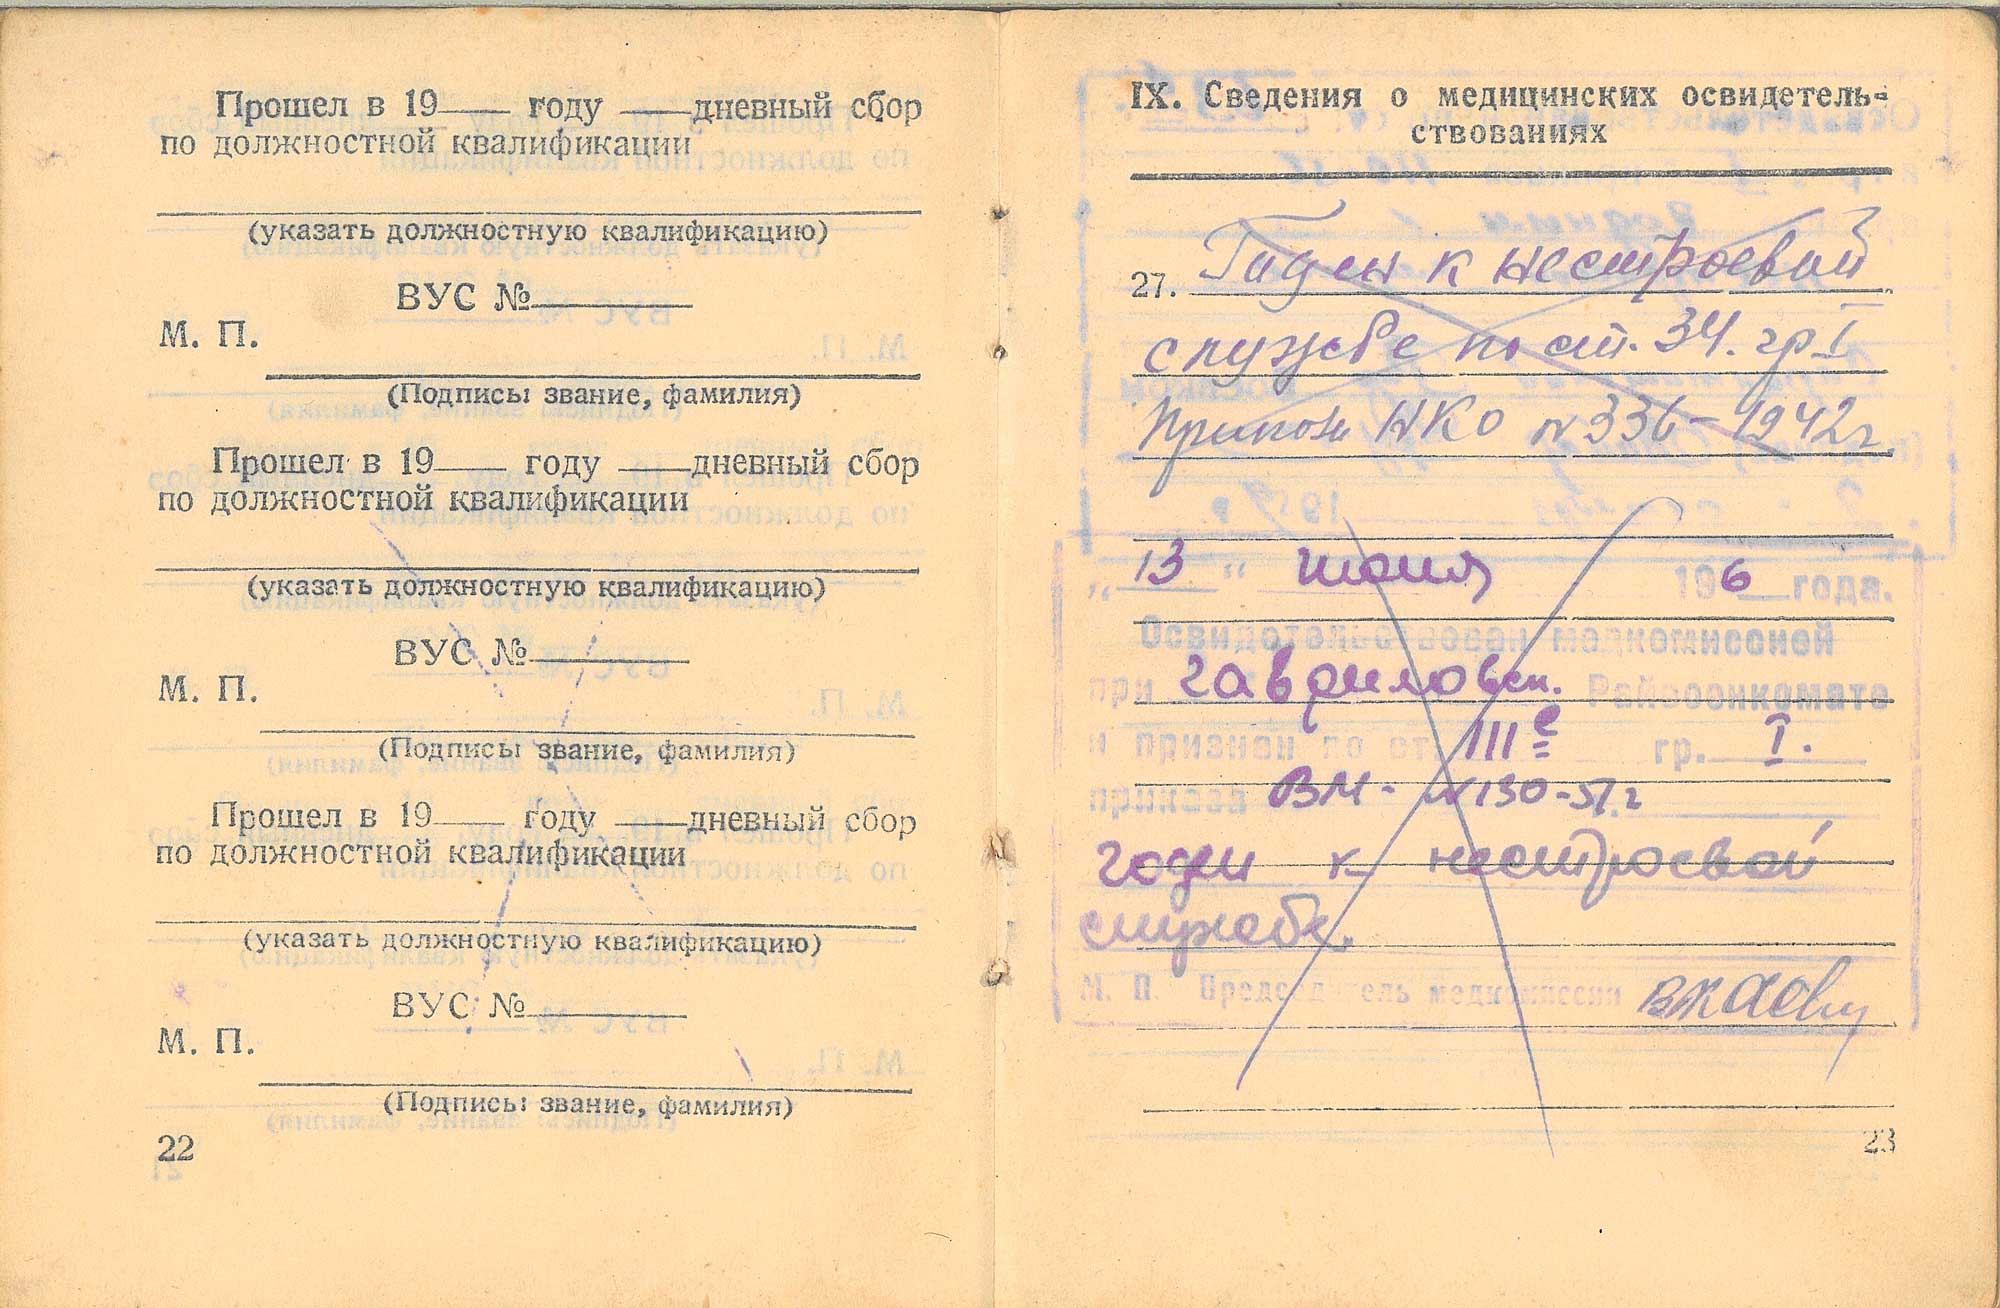 Прошел в 19___ году ___дневный сбор
по должностной квалификации
(указать должностную квалификацию)
ВУС №
М. П.
(Подпись: звание, фамилия)
Прошел в 19___ году ___дневный сбор
по должностной квалификации
(указать должностную квалификацию)
ВУС №
М. П.
(Подпись: звание, фамилия)
Прошел в 19___ году ___дневный сбор
по должностной квалификации
(указать должностную квалификацию)
ВУС №
М. П.
(Подпись: звание, фамилия)
22
IX. Сведения о медицинских освидетель-
ствованиях
27. Годен к нестроевой
службе по ст. 34. гр I
Приказа НКО №336-1942г
„13" июня 196 года.
Освидетельствован медкомиссией
при Райвоенкомате
и признан по ст. III е гр. I.
приказа ВМ- №130-51г
годен к нестроевой
службе.
М. П. Председатель медкомиссии
23